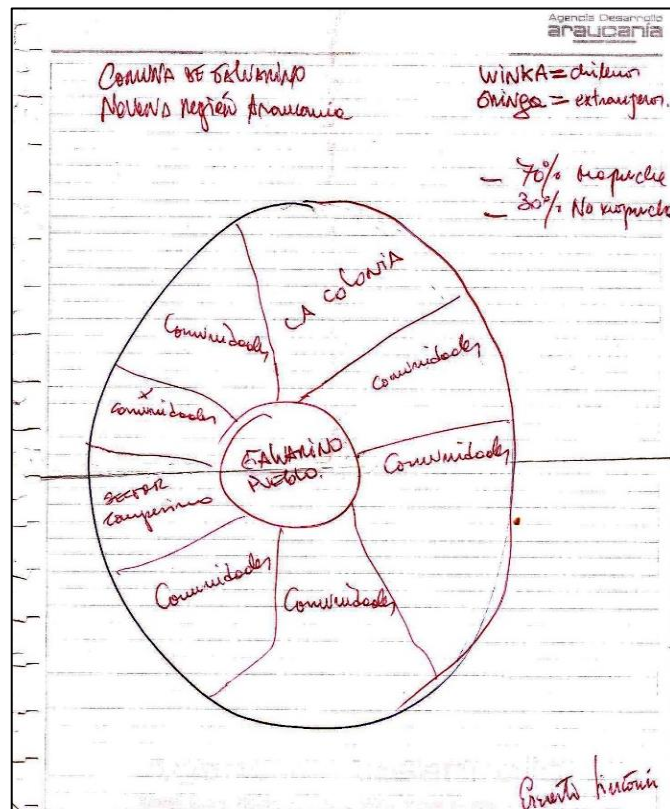 Agencia Desarrollo
araucanía
COMUNA DE GALVARINO
NOVENA región Araucanía
WINKA = chilenos
GRINGO = extranjeros.
— 70% mapuche
— 30% No mapuche
LA COLONIA
Comunidades
Comunidades
Comunidades
Comunidades
GALVARINO
PUEBLO.
SECTOR
Campesino
Comunidades
Comunidades
Ernesto